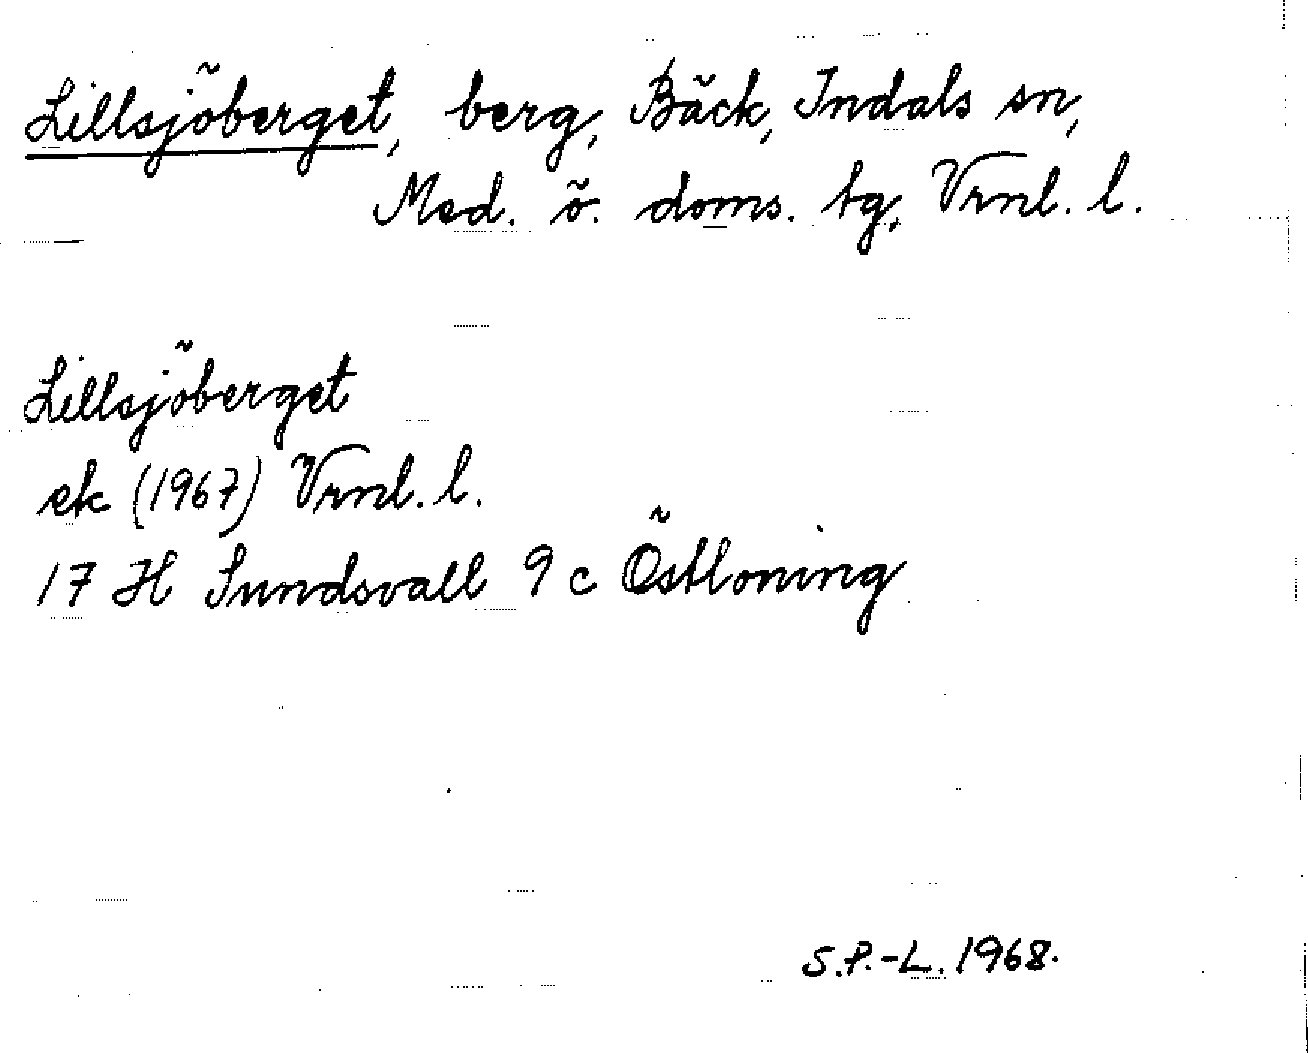 Lillsjöberget, berg, Bäck, Indals sn,
Med. ö. doms. tg, Vrnl. l.
Lillsjöberget
ek (1967) Vrnl. l.
17 H Sundsvall 9 c Östloning
S.P.-L. 1968.